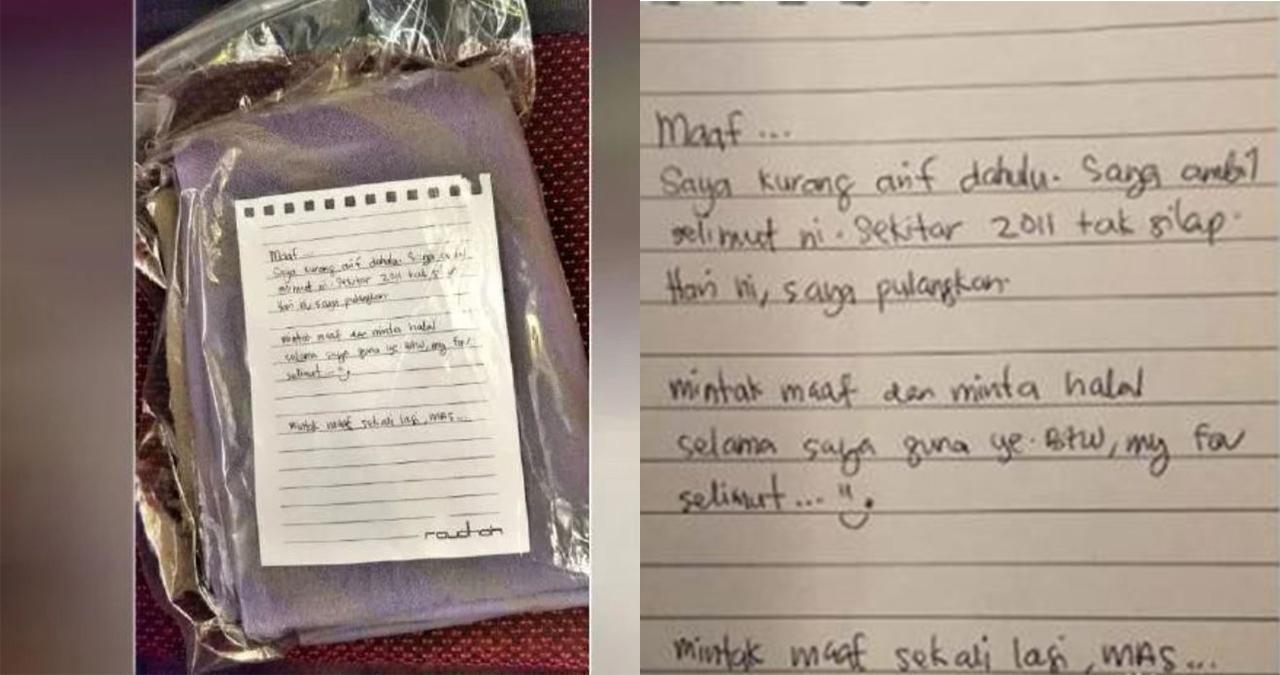 Maaf...
Saya kurang arif dahulu. Saya ambil
selimut ni. Sekitar 2011 tak silap.
Hari ni, saya pulangkan
mintak maaf dan minta halal
selama saya guna ye. BTW, my fav
selimut...
mintak maaf sekali lagi, MAS...
raudhah
Maaf...
Saya kurang arif dahulu. Saya ambil
selimut ni. Sekitar 2011 tak silap.
Hari ni, saya pulangkan
mintak maaf dan minta halal
selama saya guna ye. BTW, my fav
selimut...
mintak maaf sekali lagi, MAS...